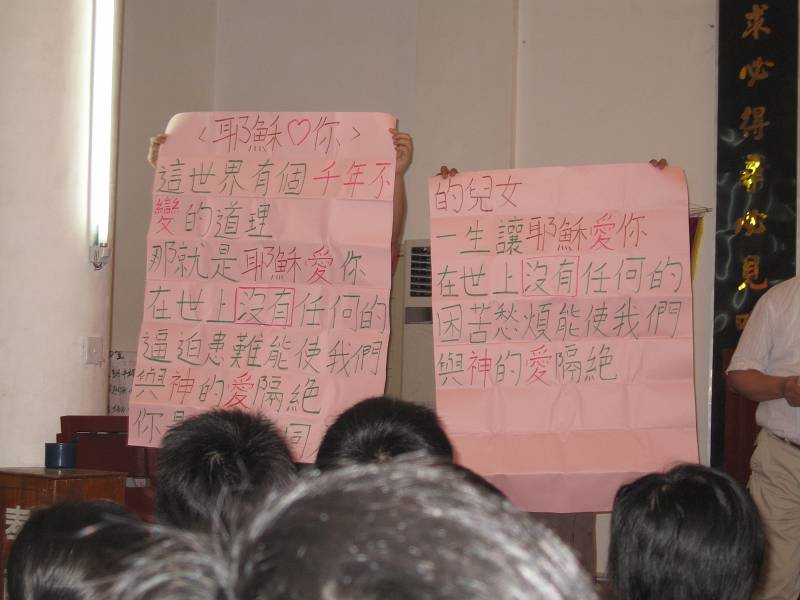 <耶穌♡你>
這世界有個千年不
變的道理
那就是耶穌愛你
在世上沒有任何的
逼迫患難能使我們
與神的愛隔絶
你
的兒女
一生讓耶穌愛你
在世上沒有任何的
困苦愁煩能使我們
與神的愛隔絶
求必得尋必見
奉